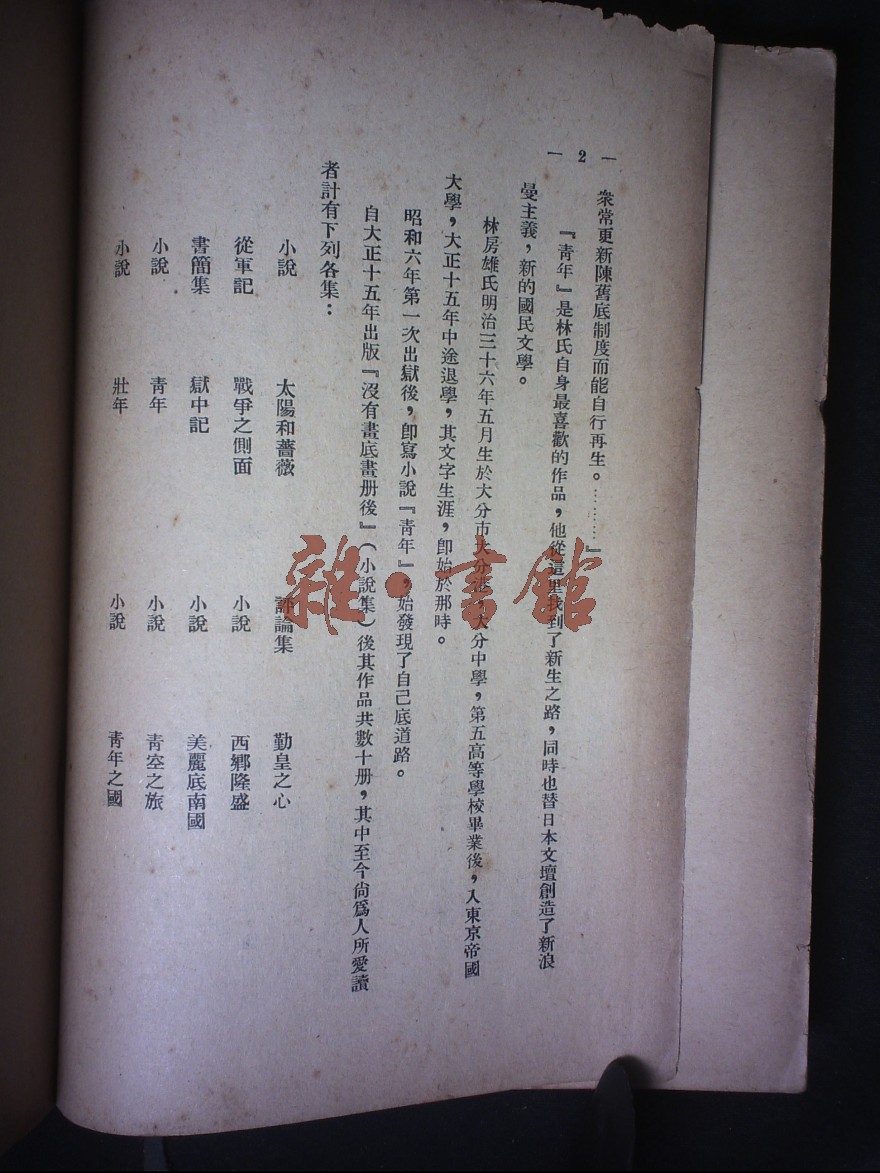 — 2 —
衆常更新陳舊底制度而能自行再生。………』
『靑年』是林氏自身最喜歡的作品，他從這里找到了新生之路，同時也替日本文壇創造了新浪
曼主義，新的國民文學。
林房雄氏明治三十六年五月生於大分市大分港，大分中學，第五高等學校畢業後，入東京帝國
大學，大正十五年中途退學，其文字生涯，卽始於那時。
昭和六年第一次出獄後，卽寫小說『靑年』，始發現了自己底道路。
自大正十五年出版『沒有畫底畫册後』（小說集）後其作品共數十册，其中至今尙爲人所愛讀
者計有下列各集：
小說　太陽和薔薇　評論集　勤皇之心
從軍記　戰爭之側面　小說　西鄕隆盛
書簡集　獄中記　小說　美麗底南國
小說　靑年　小說　靑空之旅
小說　壯年　小說　靑年之國
雜·書館